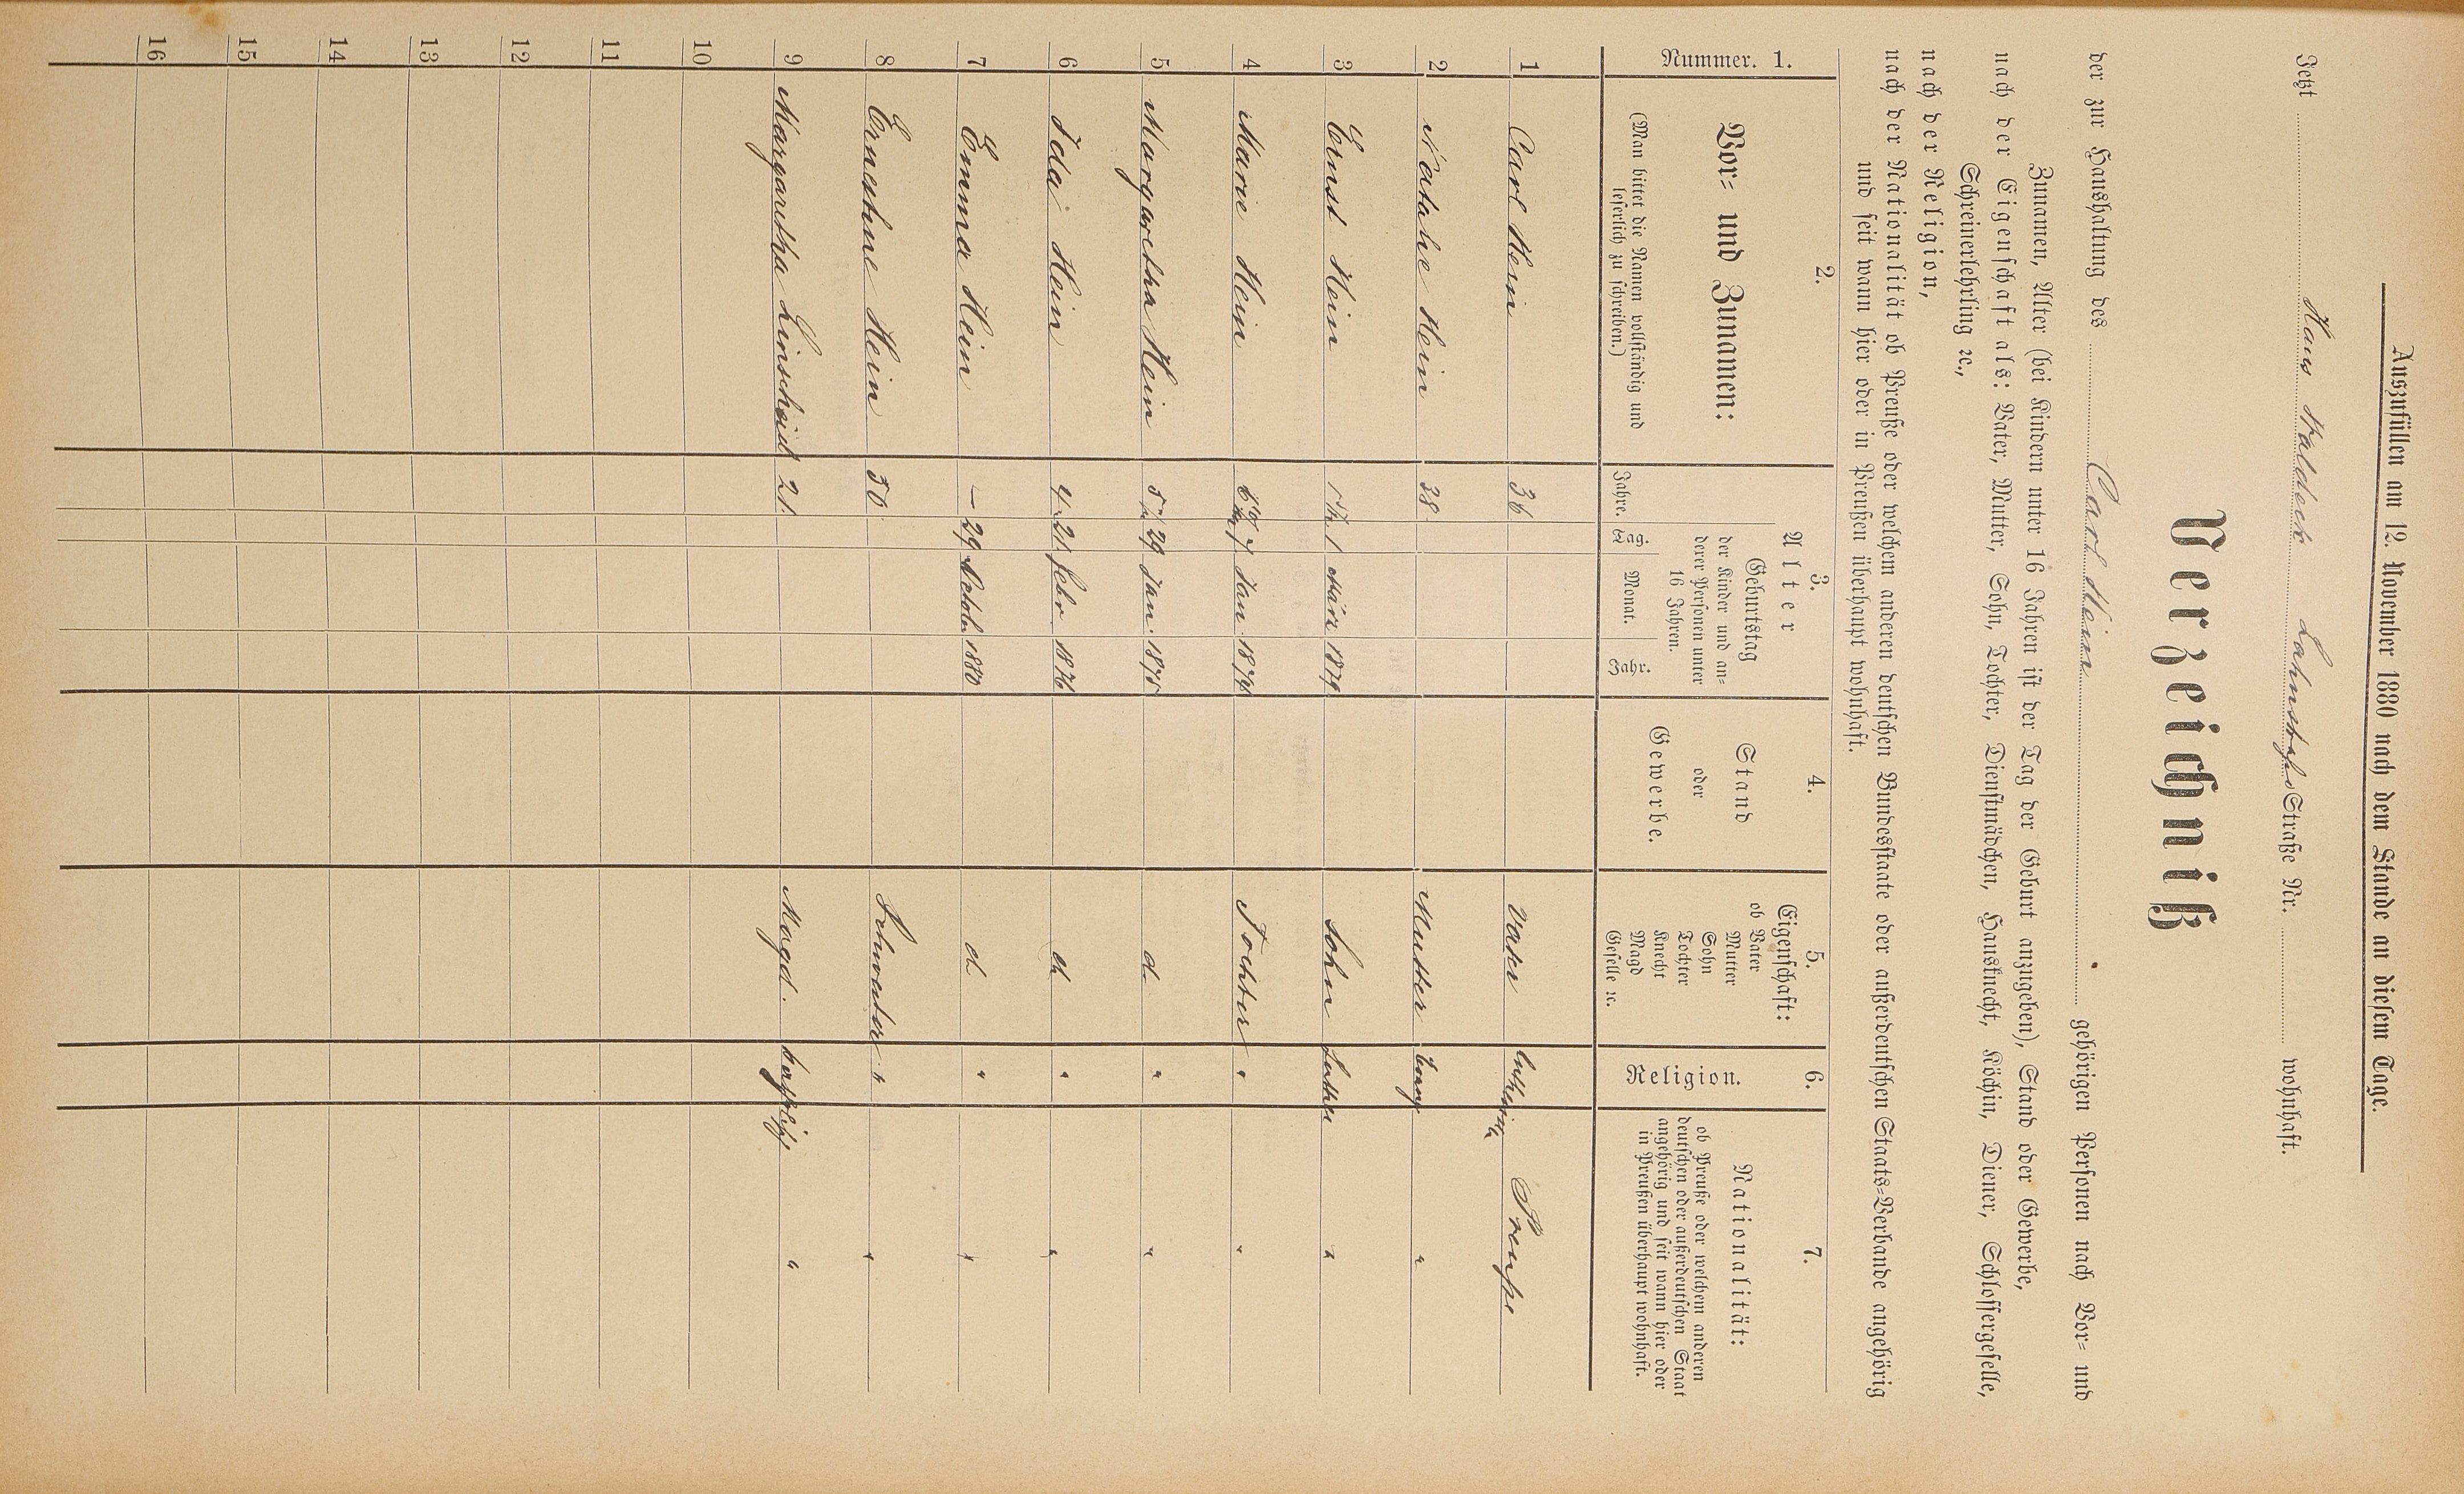 Auszufüllen am 12. November 1880 nach dem Stande an diesem Tage.
Jetzt Haus Waldeck Lahnstraße Straße Nr. wohnhaft.
Verzeichniß
der zur Haushaltung des Carl Hein gehörigen Personen nach Vor- und
Zunamen, Alter (bei Kindern unter 16 Jahren ist der Tag der Geburt anzugeben), Stand oder Gewerbe,
nach der Eigenschaft als: Vater, Mutter, Sohn, Tochter, Dienstmädchen, Hausknecht, Köchin, Diener, Schlossergeselle,
Schreinerlehrling ꝛc.,
nach der Religion,
nach der Nationalität ob Preuße oder welchem anderen deutschen Bundesstaate oder außerdeutschen Staats-Verbande angehörig
und seit wann hier oder in Preußen überhaupt wohnhaft.
Nummer. 1.
2.
Vor- und Zunamen:
(Man bittet die Namen vollständig und
leserlich zu schreiben.)
3.
Alter
Geburtstag
der Kinder und an-
derer Personen unter
16 Jahren.
Jahre. Tag. Monat. Jahr.
4.
Stand
oder
Gewerbe.
5.
Eigenschaft:
ob Vater
Mutter
Sohn
Tochter
Knecht
Magd
Geselle ꝛc.
6.
Religion.
7.
Nationalität:
ob Preuße oder welchem anderen
deutschen oder außerdeutschen Staat
angehörig und seit wann hier oder
in Preußen überhaupt wohnhaft.
1 Carl Hein 36 Vater Preuße
2 Natalie Hein 38 Mutter evang "
3 Ernst Hein 1 März 1879 Sohn "
4 Marie Hein 7 Jan. 1874 Tochter " "
5 Margaretha Hein 29 Jan. 1875 d " "
6 Ida Hein 4 21 Febr 1876 d " "
7 Emma Hein – 29 Octob. 1880 d " "
8 Ernestine Hein 30 Schwester " "
9 Margaretha Linscheid 21 Magd. "
10
11
12
13
14
15
16